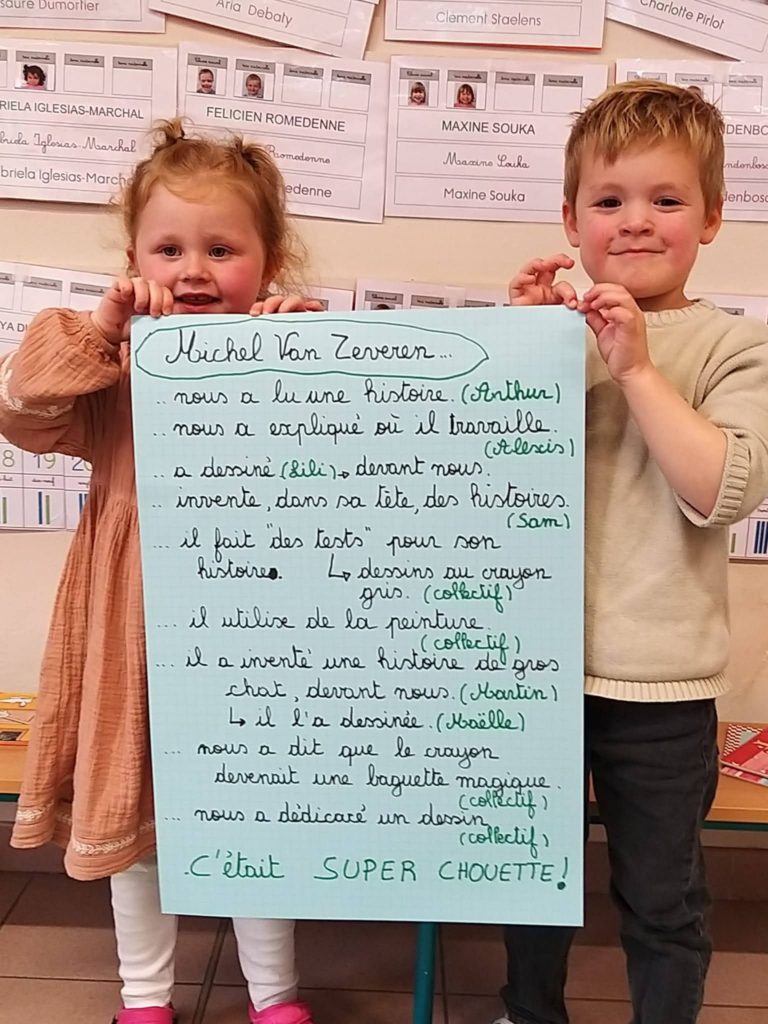 saure Dumortier
Aria Debaty
Clément Staelens
Charlotte Pirlot
RIELA IGLESIAS-MARCHAL
FELICIEN ROMEDENNE
MAXINE SOUKA
DENBO
briela Iglesias-Marchal
Romedenne
Maxine Souka
ndenbosc
abriela Iglesias-March
edenne
Maxine Souka
denbosc
YA DU
18 19 20
Michel Van Zeveren...
.. nous a lu une histoire. (Arthur)
.. nous a expliqué où il travaille.
(Alexis)
.. a dessiné (Lili) ↳ devant nous.
.. invente, dans sa tête, des histoires.
(Sam)
... il fait "des tests" pour son
histoire. ↳ dessins au crayon
gris. (collectif)
... il utilise de la peinture.
(collectif)
... il a inventé une histoire de gros
chat, devant nous. (Martin)
↳ il l'a dessinée. (Maëlle)
... nous a dit que le crayon
devenait une baguette magique.
(collectif)
... nous a dédicacé un dessin
(collectif)
C'était SUPER CHOUETTE!